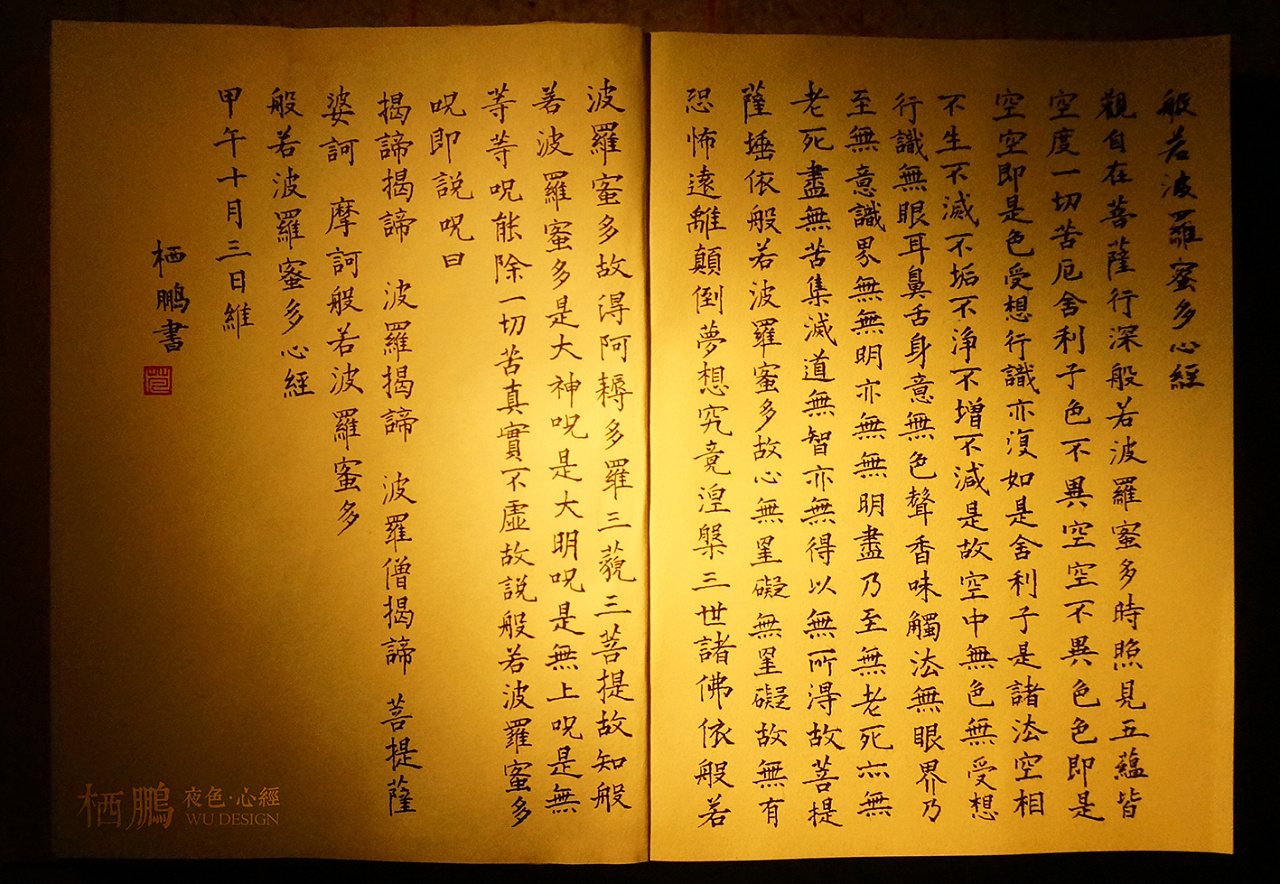 般若波羅蜜多心經
觀自在菩薩行深般若波羅蜜多時照見五蘊皆
空度一切苦厄舍利子色不異空空不異色色即是
空空即是色受想行識亦復如是舍利子是諸法空相
不生不滅不垢不淨不增不減是故空中無色無受想
行識無眼耳鼻舌身意無色聲香味觸法無眼界乃
至無意識界無無明亦無無明盡乃至無老死亦無
老死盡無苦集滅道無智亦無得以無所得故菩提
薩埵依般若波羅蜜多故心無罣礙無罣礙故無有
恐怖遠離顛倒夢想究竟涅槃三世諸佛依般若
波羅蜜多故得阿耨多羅三藐三菩提故知般
若波羅蜜多是大神呪是大明呪是無上呪是無
等等呪能除一切苦真實不虛故説般若波羅蜜多
呪即説呪曰
揭諦揭諦 波羅揭諦 波羅僧揭諦 菩提薩
婆訶 摩訶般若波羅蜜多
般若波羅蜜多心經
甲午十月三日維
栖鵬書
栖鵬 夜色·心經
WU DESIGN